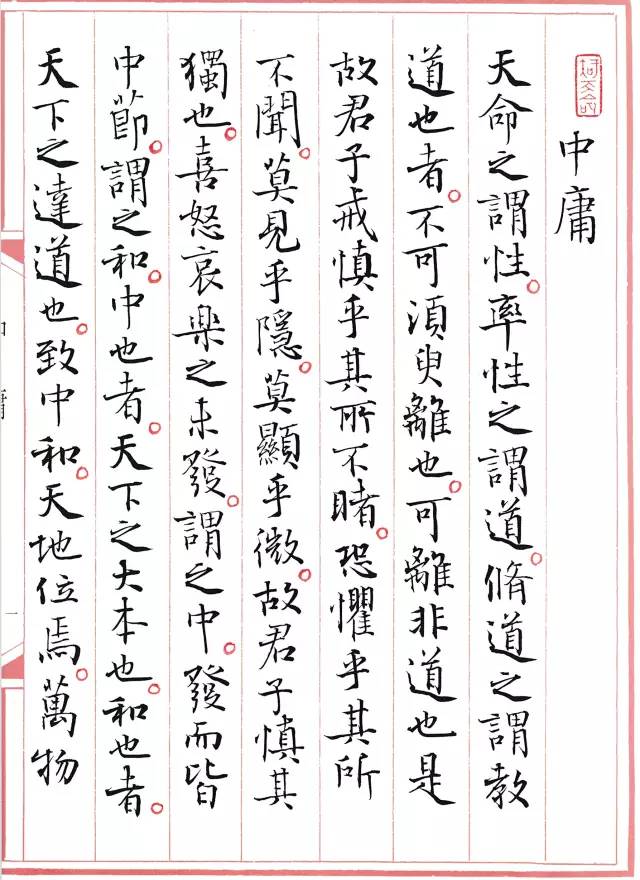 中庸
天命之謂性。率性之謂道。脩道之謂教
道也者。不可須臾離也。可離非道也是
故君子戒慎乎其所不睹。恐懼乎其所
不聞。莫見乎隱。莫顯乎微。故君子慎其
獨也。喜怒哀樂之未發。謂之中。發而皆
中節。謂之和。中也者。天下之大本也。和也者。
天下之達道也。致中和。天地位焉。萬物